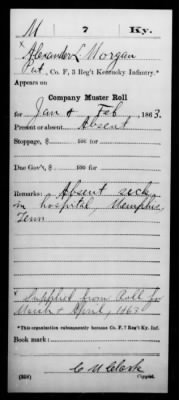 M 7 Ky.
x Alexander L Morgan
Pvt, Co. F, 3 Reg't Kentucky Infantry.*
Appears on
Company Muster Roll
for Jan & Feb, 1863.
Present or absent Absent
Stoppage, $ 100 for
Due Gov't, $ 100 for
Remarks: Absent sick
in hospital, Memphis,
Tenn
x Supplied from Roll for
March & April, 1863
*This organization subsequently became Co. F, 7 Reg't Ky. Inf.
Book mark:
(858) Copyist.